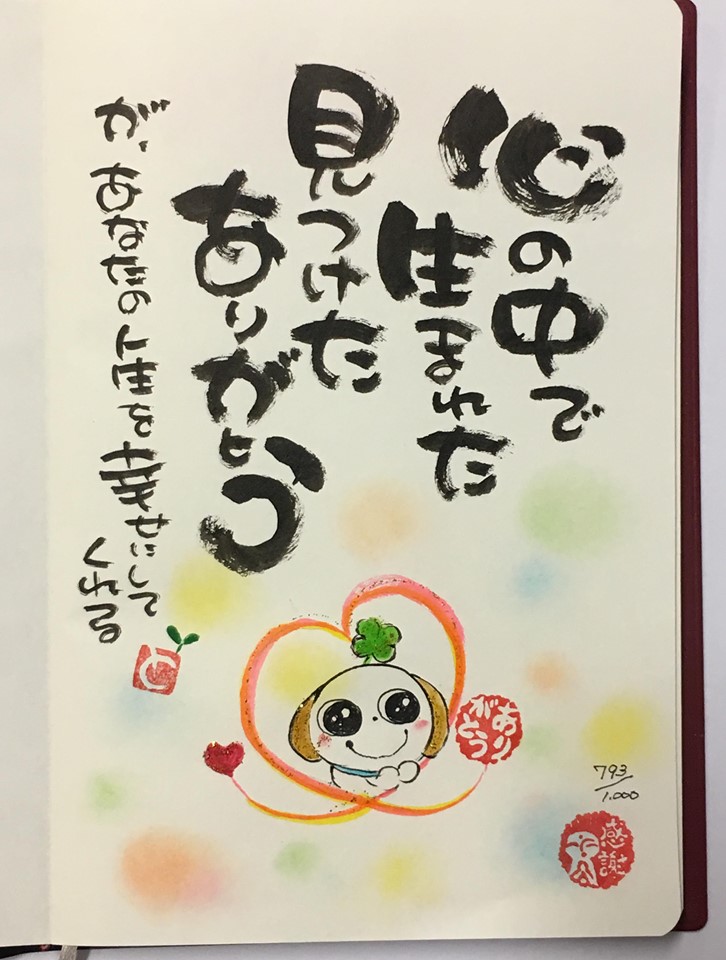 心の中で
生まれた
見つけた
ありがとう
が、あなたの人生を幸せにして
くれる
ありがとう
793/1.000
感謝